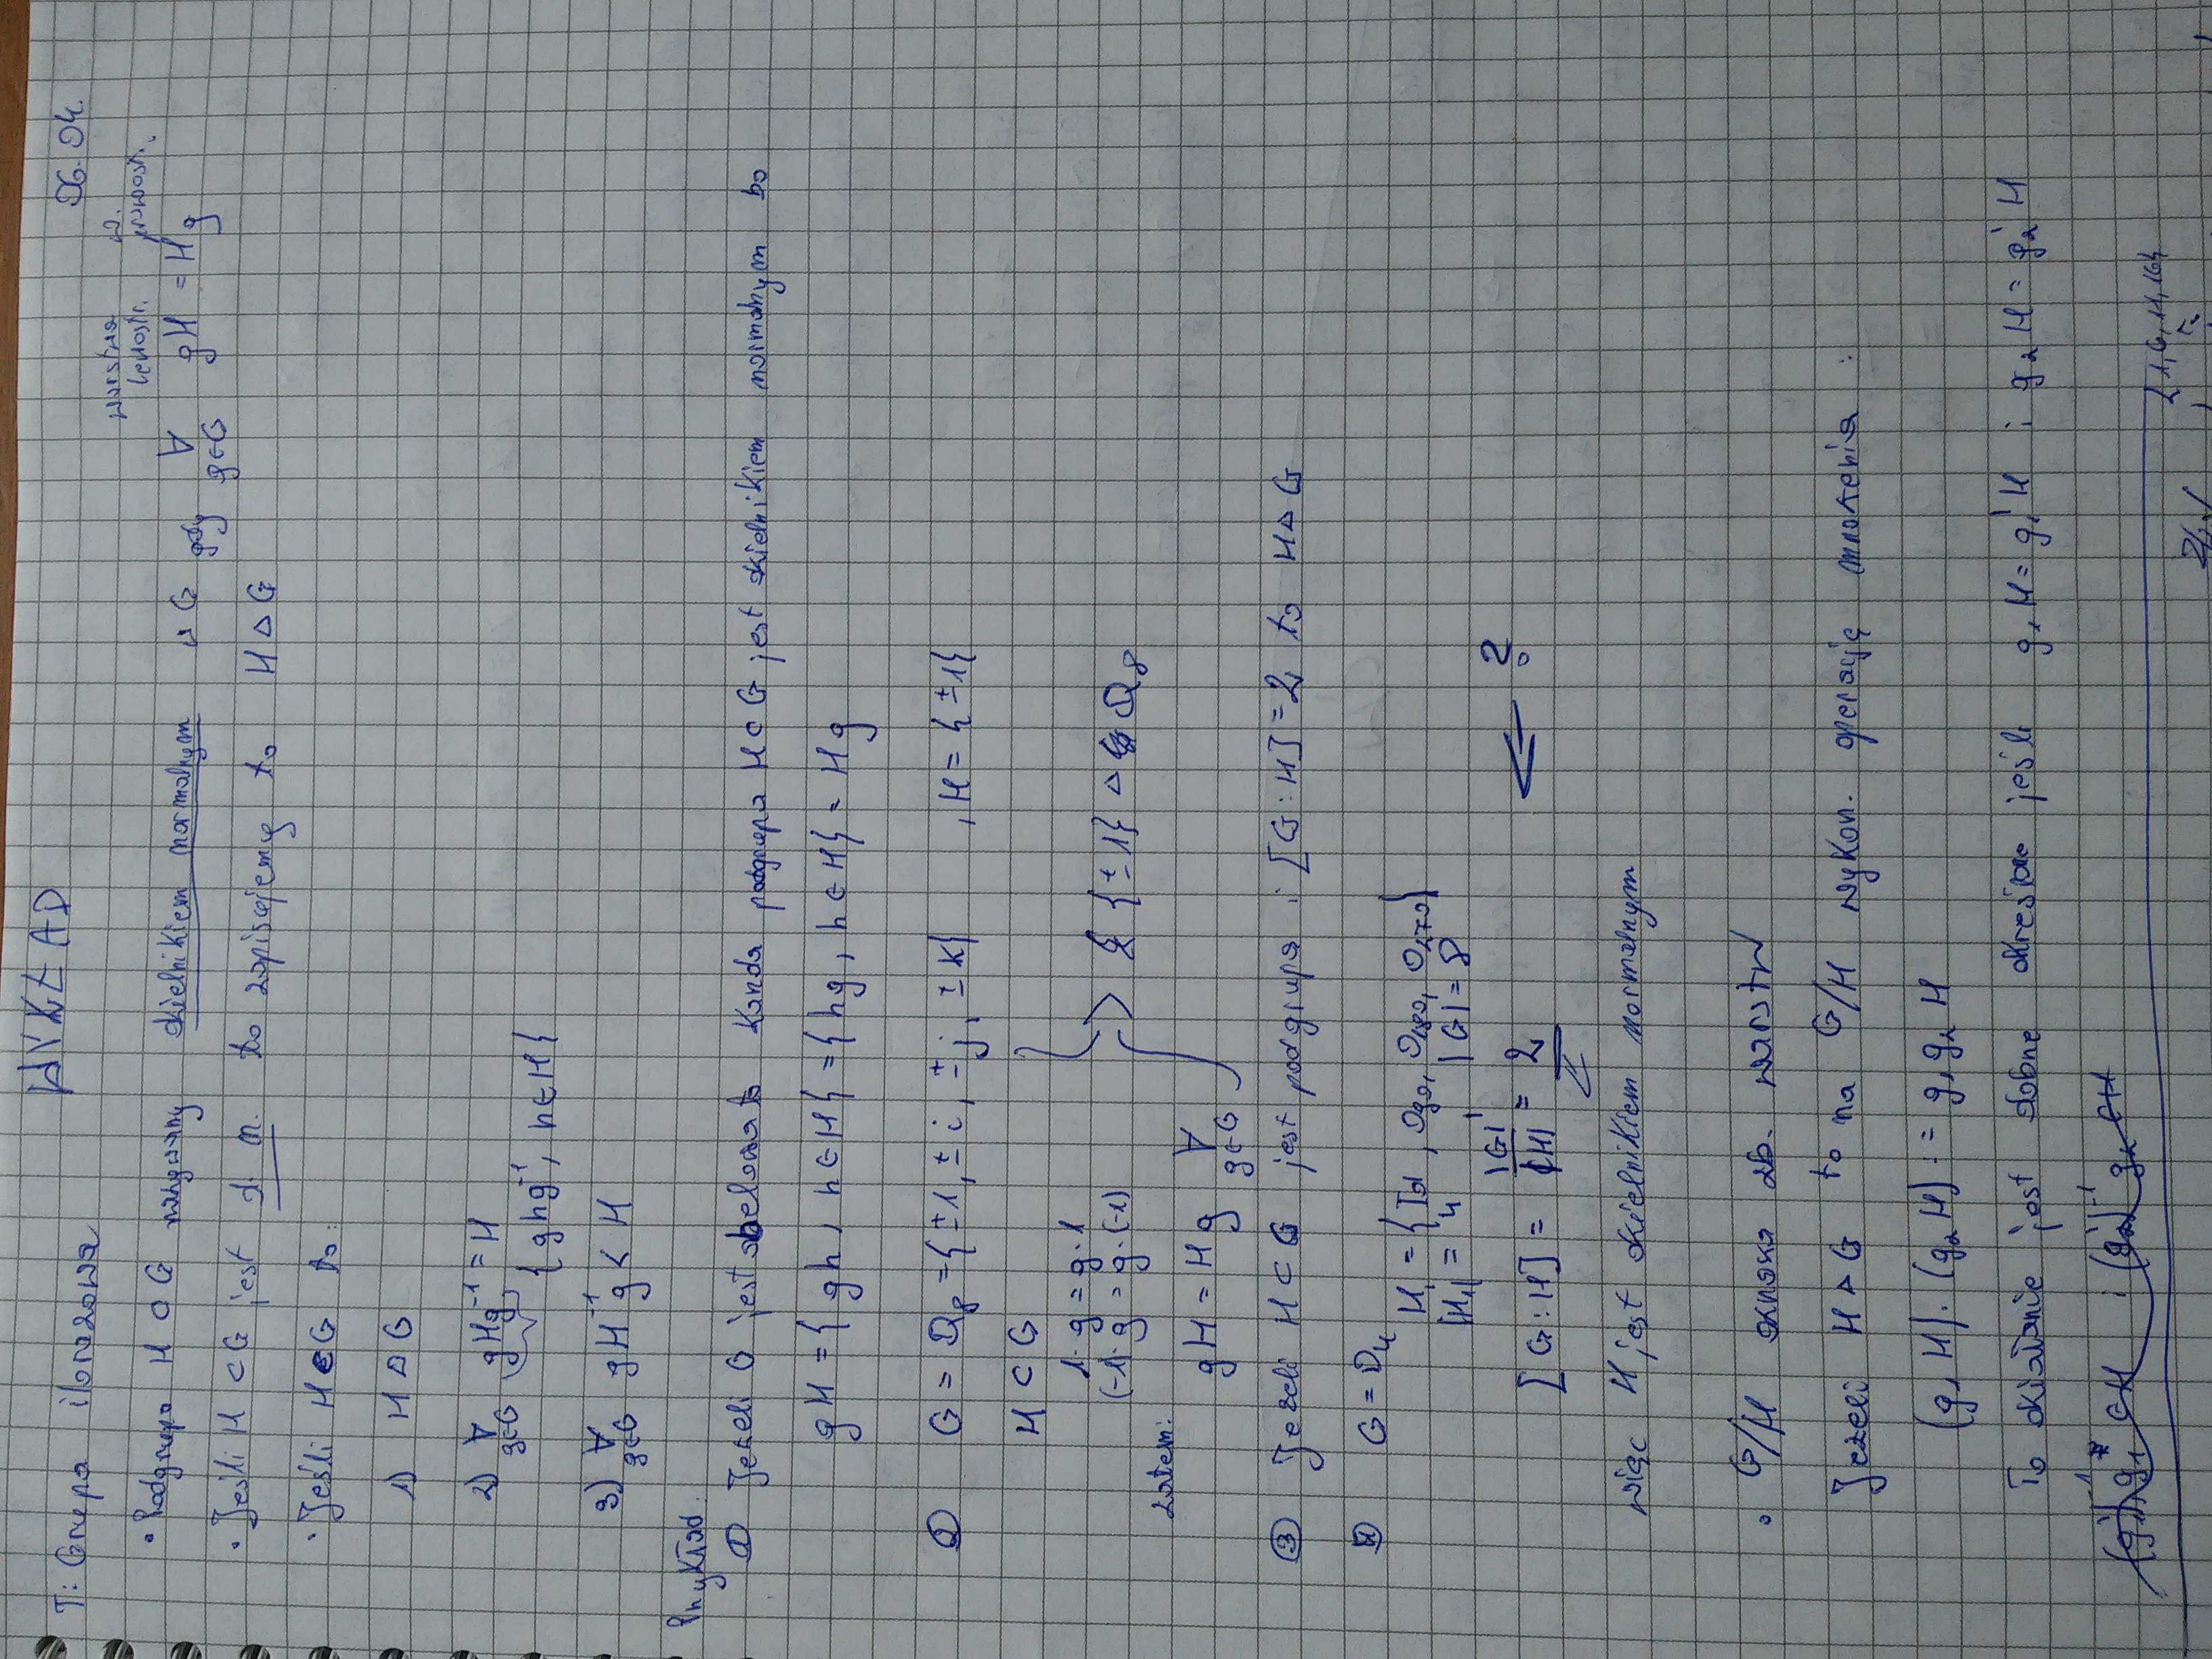 WYKŁAD
06.04.
T: Grupa ilorazowa
warstwa lewostr. w. prawost.
• Podgrupa H ⊂ G nazywamy dzielnikiem normalnym w G gdy ∀ g∈G gH = Hg
• Jeśli H ⊂ G jest d. n. to zapisujemy to H △ G
• Jeśli H ⊂ G to:
1) H △ G
2) ∀ g∈G gHg⁻¹ = H
{ghg⁻¹, h∈H}
3) ∀ g∈G gH⁻¹g < H
Przykład.
① Jeżeli G jest abelowa to Każda podgrupa H ⊂ G jest dzielnikiem normalnym bo
gH = {gh, h∈H} = {hg, h∈H} = Hg
② G = Q₈ = {±1, ±i, ±j, ±k} , H = {±1}
H ⊂ G
1·g = g·1
(-1)·g = g·(-1)
{±1} △ Q₈
zatem:
gH = Hg ∀ g∈G
③ Jeżeli H ⊂ G jest podgrupa i [G:H] = 2 to H △ G
④ G = D₄
H₁ = {Id, O₉₀, O₁₈₀, O₂₇₀}
|H₁| = 4 , |G| = 8
[G:H] = |G|/|H| = 2 ← ?
więc H jest dzielnikiem normalnym
• G/H oznacza zb. warstw
Jeżeli H △ G to na G/H wykon. operację mnożenia :
(g₁H)·(g₂H) := g₁g₂H
To działanie jest dobrze określone jeśli g₁H = g₁'H i g₂H = g₂'H
(g₁')⁻¹g₁ ∈ H i (g₂')⁻¹ g₂ ∈ H
{1, 6, 11, 16}